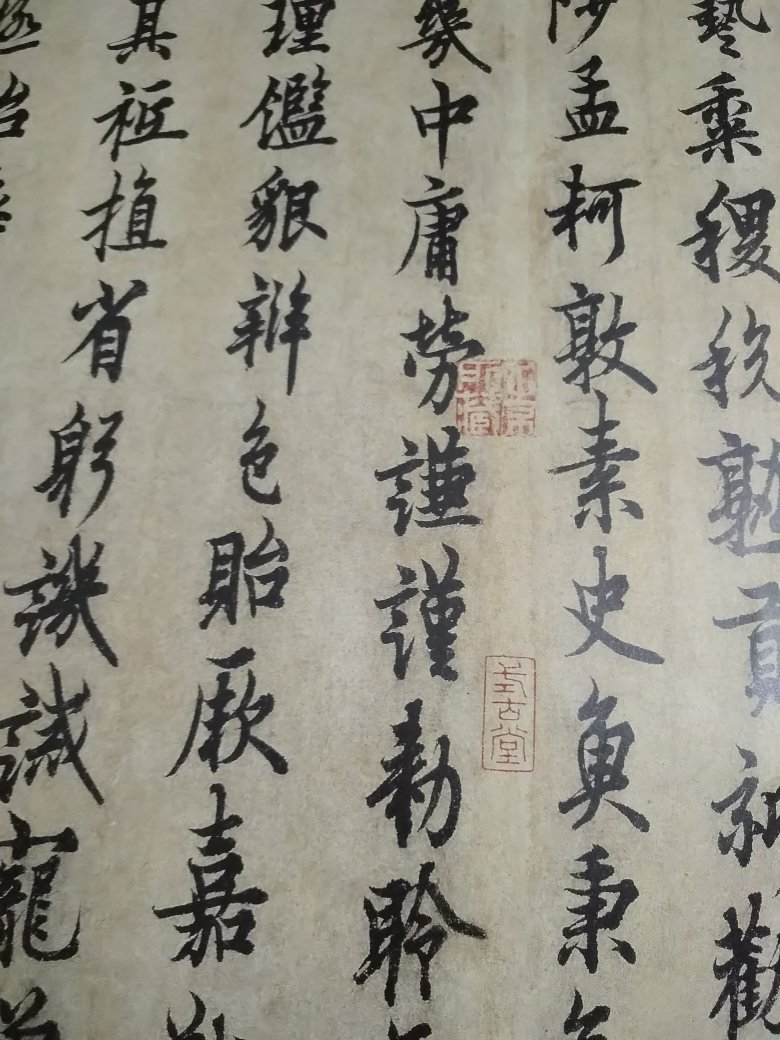 藝黍稷稅熟貢新勸
陟孟軻敦素史魚秉
幾中庸勞謙謹勅聆
理鑑貌辯色貽厥嘉
其祗植省躬譏誡寵
極殆
式古堂